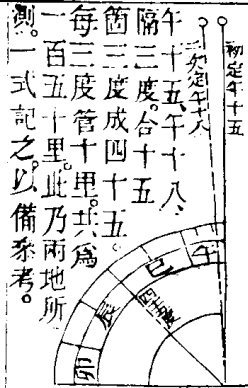 初定午十五
二处定午十八
午十五、午十八、
隔三度。合十五
箇三度成四十五。
每三度管十里。共爲
一百五十里。此乃兩地所
測。一式記之。以備叅考。
午
巳
辰
卯
四十五度